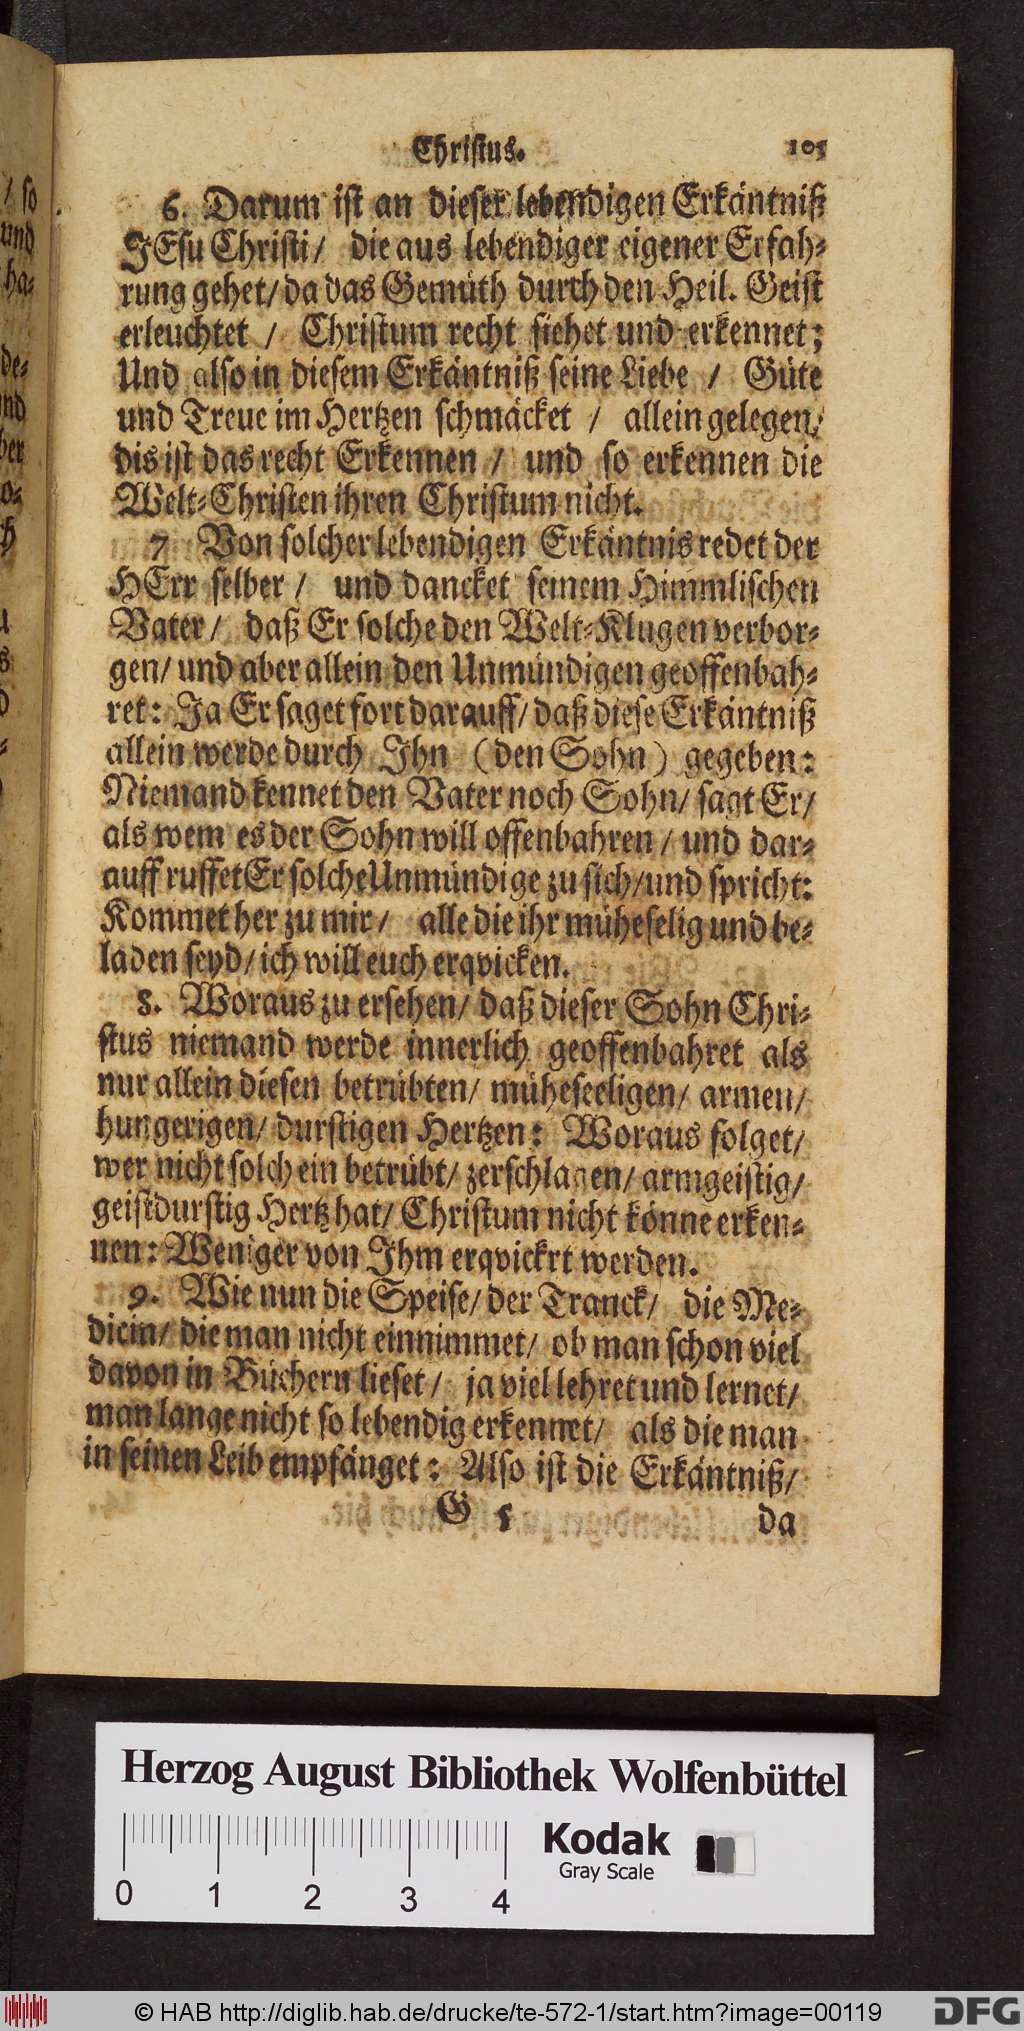 Christus. 105
6. Darum ist an dieser lebendigen Erkäntniß
JEsu Christi/ die aus lebendiger eigener Erfah-
rung gehet/ da das Gemüth durch den Heil. Geist
erleuchtet / Christum recht siehet und erkennet;
Und also in diesem Erkäntniß seine Liebe / Güte
und Treue im Hertzen schmäcket / allein gelegen/
dis ist das recht Erkennen / und so erkennen die
Welt-Christen ihren Christum nicht.
7 Von solcher lebendigen Erkäntnis redet der
HErr selber / und dancket seinem Himmlischen
Vater / daß Er solche den Welt-Klugen verbor-
gen/ und aber allein den Unmündigen geoffenbah-
ret: Ja Er saget fort darauff/ daß diese Erkäntniß
allein werde durch Ihn (den Sohn) gegeben:
Niemand kennet den Vater noch Sohn/ sagt Er/
als wem es der Sohn will offenbahren / und dar-
auff ruffet Er solche Unmündige zu sich/ und spricht:
Kommet her zu mir / alle die ihr müheselig und be-
laden seyd/ ich will euch erqvicken.
8. Woraus zu ersehen/ daß dieser Sohn Chri-
stus niemand werde innerlich geoffenbahret als
nur allein diesen betrübten/ müheseeligen/ armen/
hungerigen/ durstigen Hertzen: Woraus folget/
wer nicht solch ein betrübt/ zerschlagen/ armgeistig/
geistdurstig Hertz hat/ Christum nicht könne erken-
nen: Weniger von Ihm erqvickrt werden.
9. Wie nun die Speise/ der Tranck/ die Me-
dicin/ die man nicht einnimmet/ ob man schon viel
davon in Büchern lieset / ja viel lehret und lernet/
man lange nicht so lebendig erkennet/ als die man
in seinen Leib empfänget: Also ist die Erkäntniß/
G 5 da
/ so
und
ha-
de-
nd
ber
o-
Herzog August Bibliothek Wolfenbüttel
Kodak
Gray Scale
0 1 2 3 4
© HAB http://diglib.hab.de/drucke/te-572-1/start.htm?image=00119
DFG